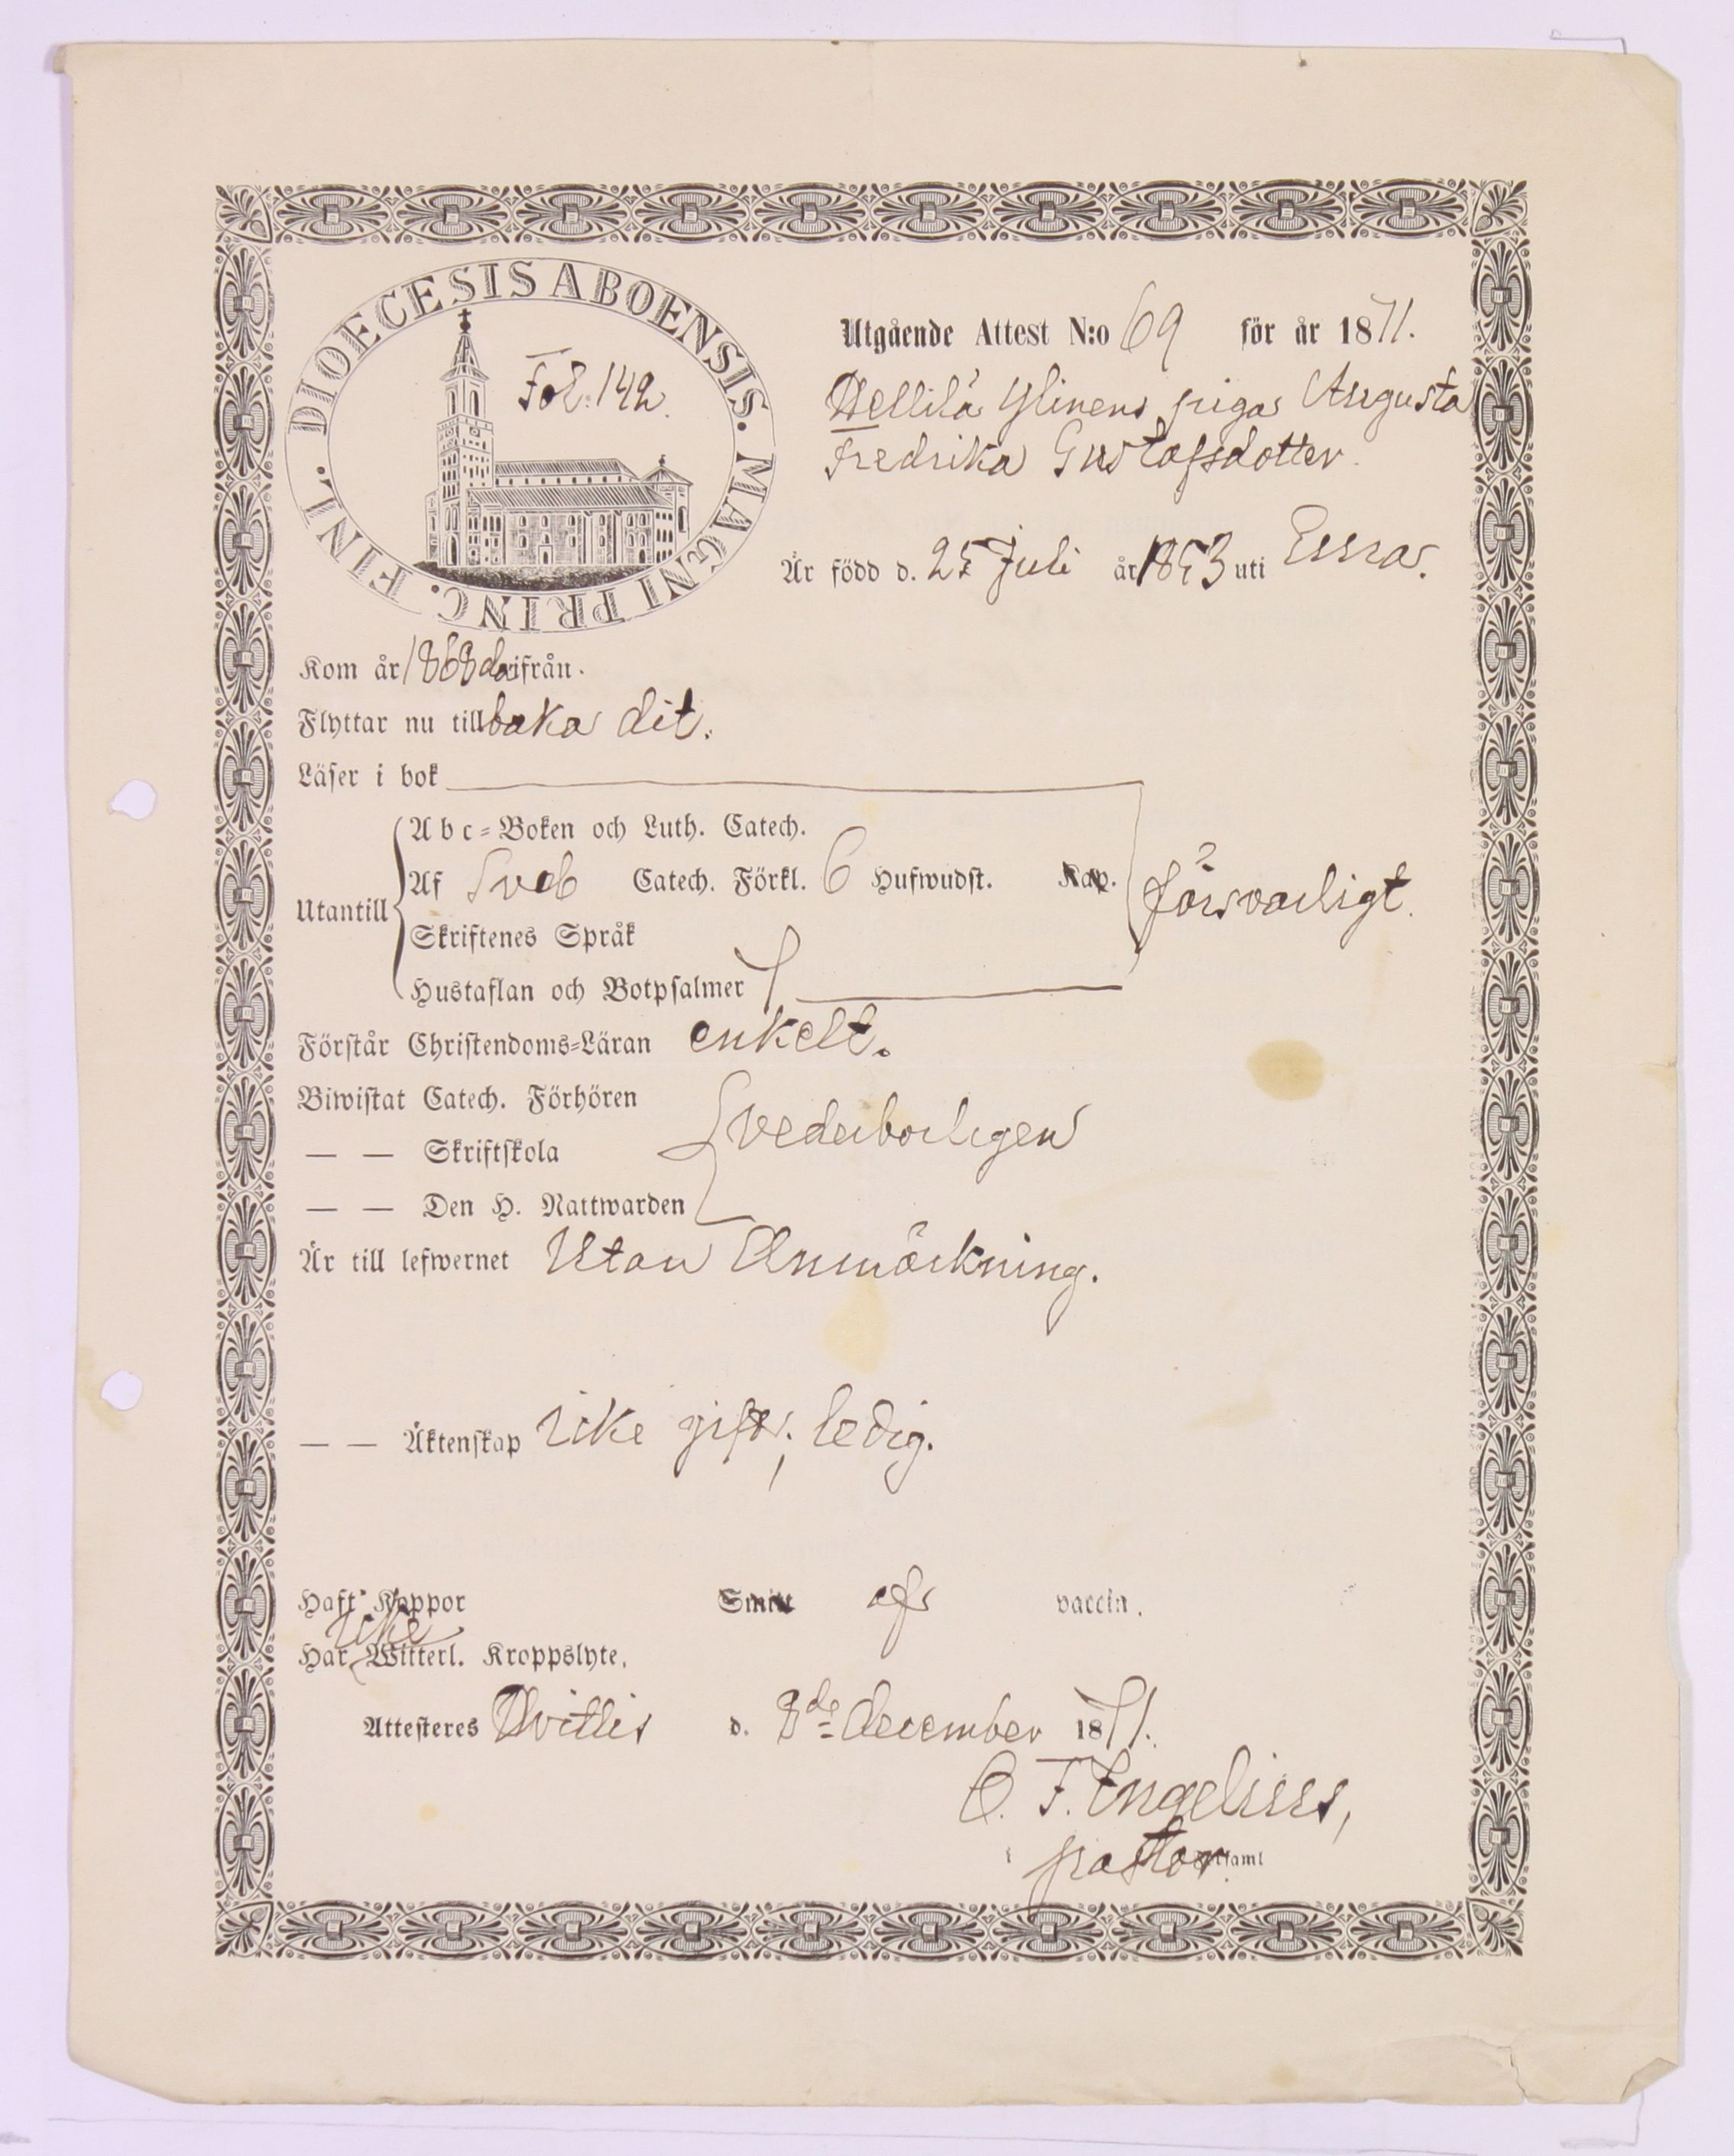 DIOECESIS ABOENSIS. MAGNI PRINC. FINL.
Fol. 142.
Utgående Attest N:o 69 för år 1871.
Augusta
Fredrika Gustafsdotter.
Är född d. 25 Juli år 1853 uti Eura.
Kom år 1868 därifrån.
Flyttar nu tillbaka dit.
Läser i bok
Abc=Boken och Luth. Catech.
Af Sveb Catech. Förkl. 6 Hufwudst. Kap.
försvarligt.
Utantill
Skriftenes Språk
Hustaflan och Botpsalmer
Förstår Christendoms=Läran enkelt.
Biwistat Catech. Förhören
vederbörligen
— — Skriftskola
— — Den H. Nattwarden
Är till lefwernet Utan Anmärkning.
— — Äktenskap icke gift; ledig.
Haft Koppor Smitt af vaccin.
icke
Har Witterl. Kroppslyte.
Attesteres Hvittis d. 8de December 1871.
C. F. Engelius,
pastor.